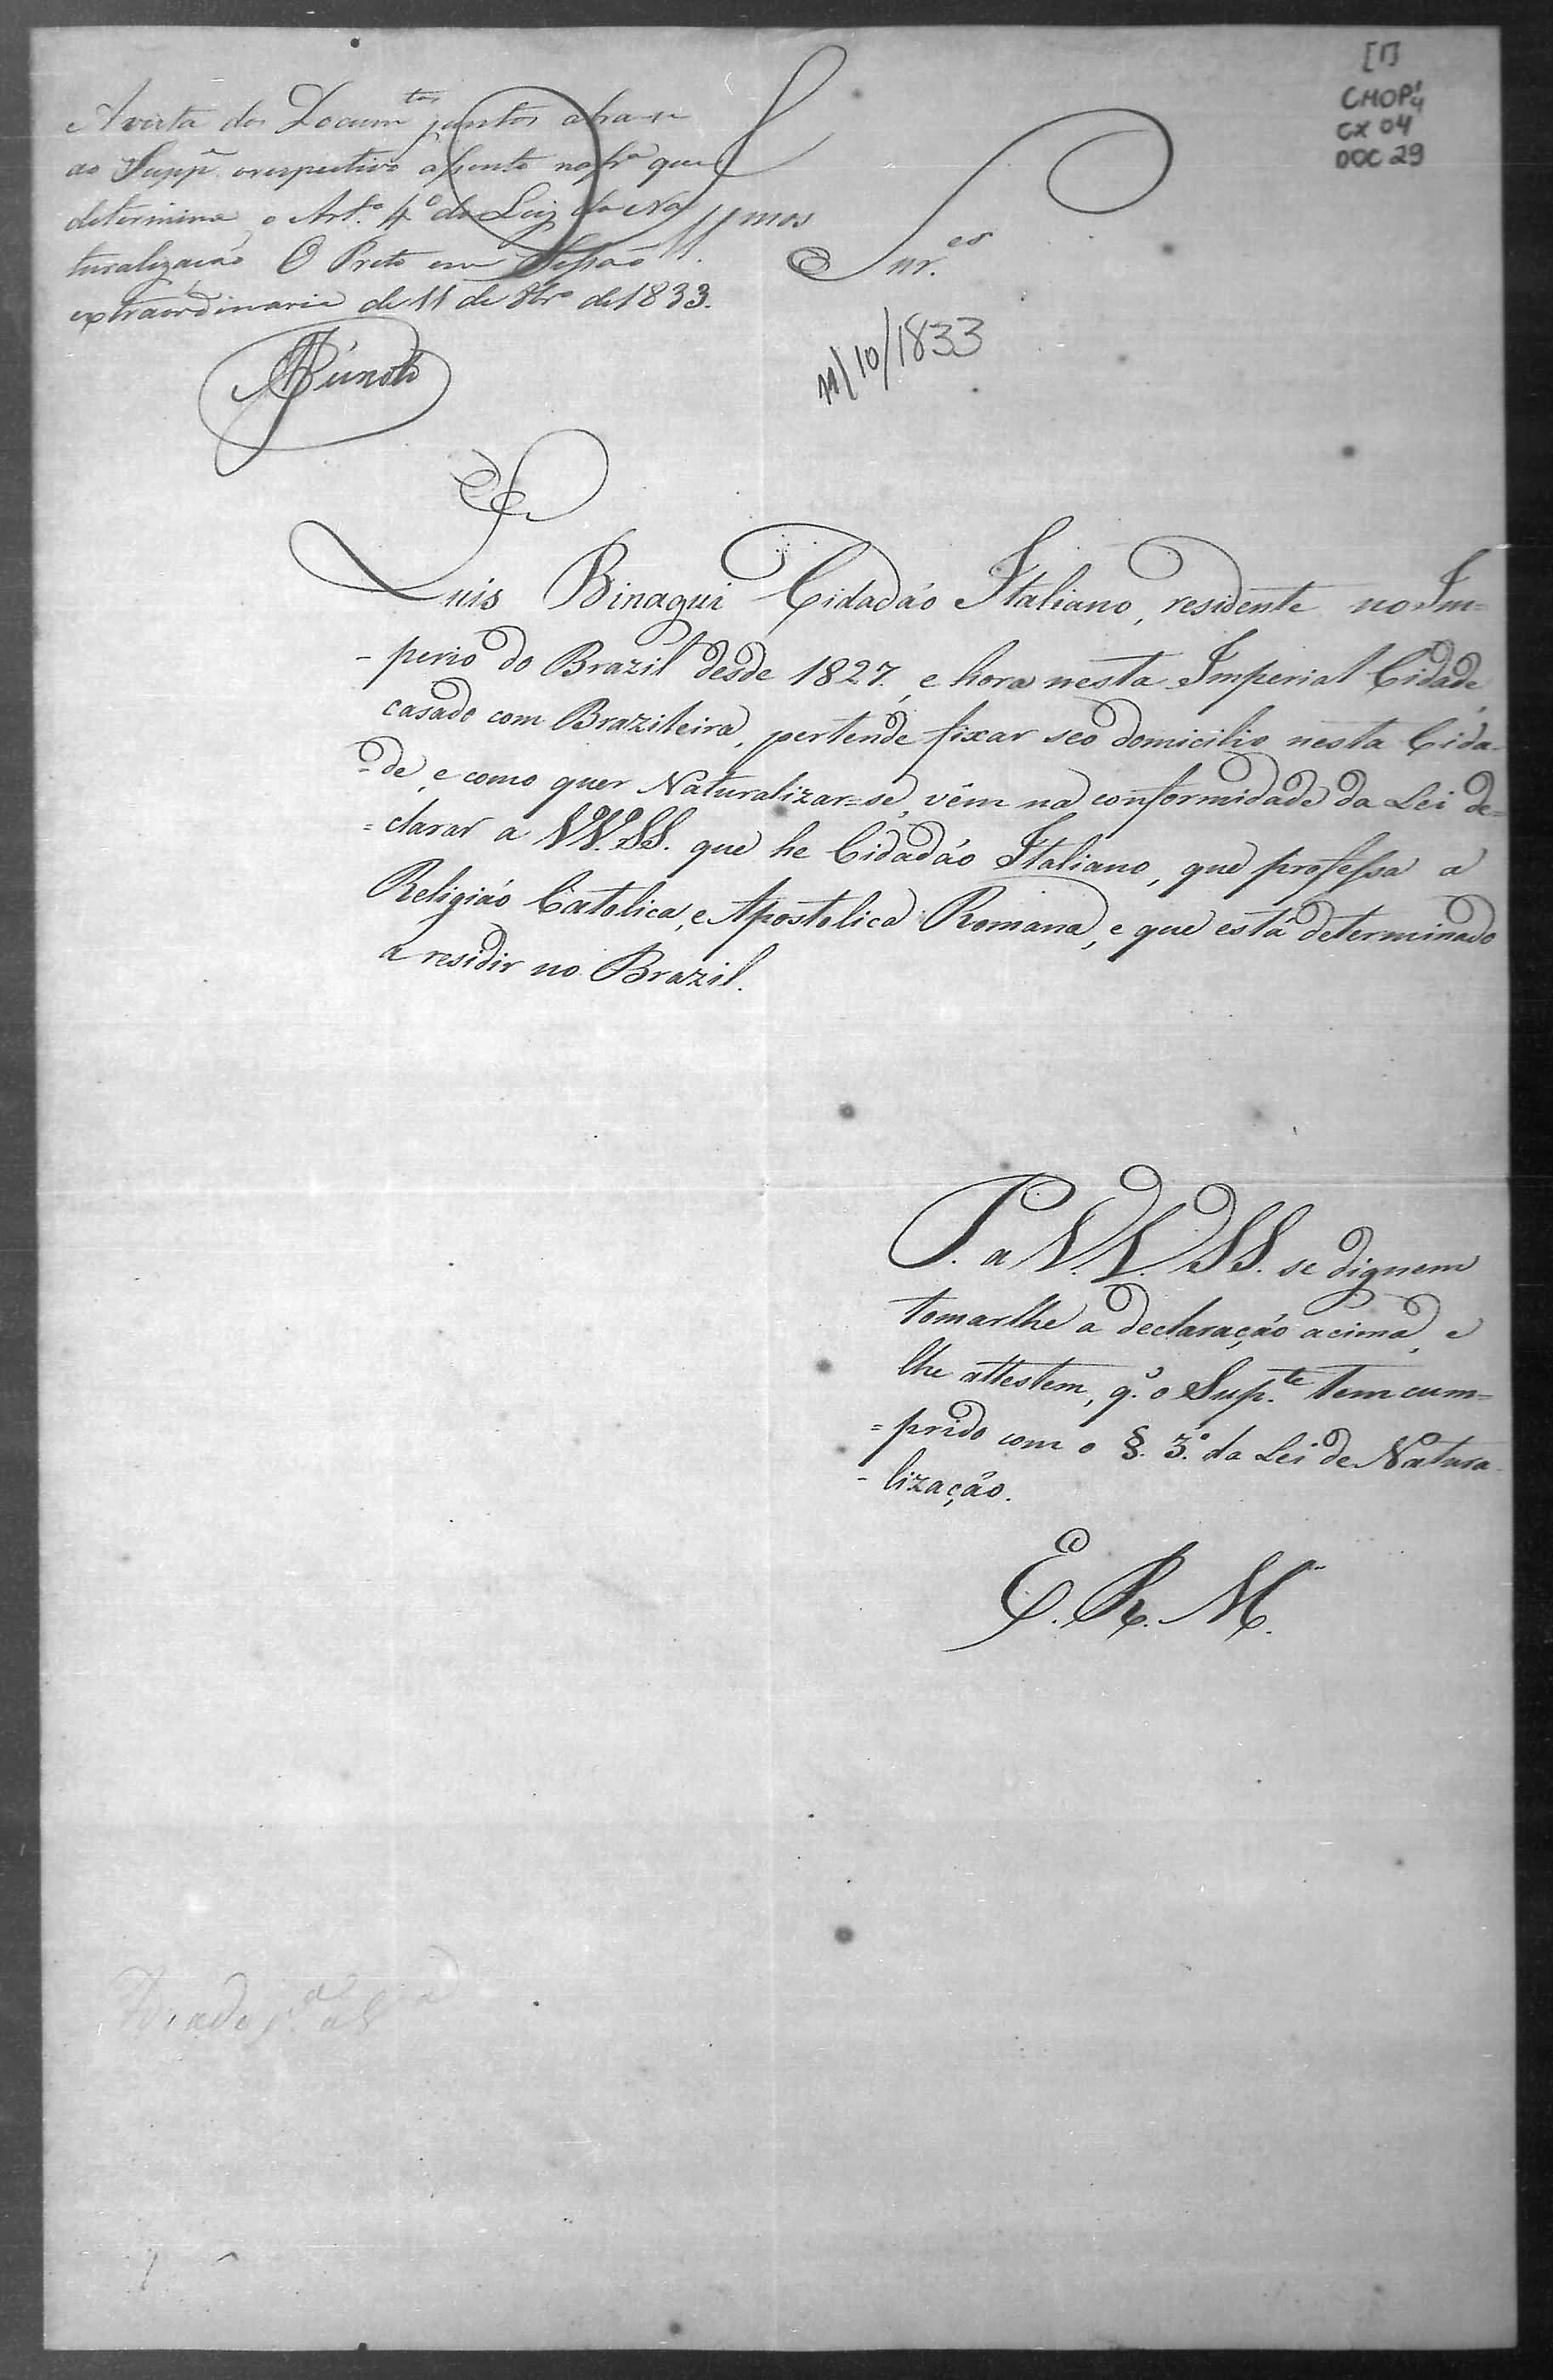 [1]
CMOP 4
CX 04
DOC 29
A vista dos Docum.tos juntos abra-se
ao Supp.e o respectivo assento na fr.a que
determina o Art.o 4.o da Lei da Na
turalização O Preto em Sessão
extraordinaria de 11 de 8br.o de 1833.
Ill.mos Snr.es
11/10/1833
Luis Binagui Cidadão Italiano, residente no Im=
- perio do Brazil desde 1827, e hora nesta Imperial Cidade,
casado com Brazileira, pertende fixar seo domicilio nesta Cida-
- de, e como quer Naturalizar=se, vêm na conformidade da Lei de=
= clarar a VV. SS. que he Cidadão Italiano, que professa a
Religião Catolica, e Apostolica Romana, e que está determinado
a residir no Brazil.
P. a V.V. SS. se dignem
tomarlhe a declaração acima, e
lhe attestem, q.' o Sup.te tem cum=
= prido com o §. 3.o da Lei de Natura-
- lização.
E. R. M.